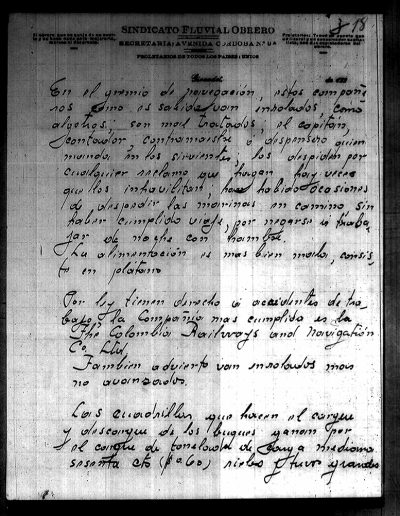 SINDICATO FLUVIAL OBRERO
SECRETARIA: AVENIDA CORDOBA No
PROLETARIOS DE TODOS LOS PAISES: UNIOS
18
En el gremio de navegación, estos compañe
ros como es sabido van enrolados, como
algotros; son mal tratados, el capitán,
contador, contramaestre o despensero quien
manda en los sirvientes, los despiden por
cualquier reclamo que hagan hay veces
que los inhabilitan, ha habido ocasiones
de despedir las marinas en camino sin
haber cumplido viaje, por negarse a traba
jar de noche con hambre.
La alimentación es mas bien mala, consis
te en plátano
Por ley tienen derecho a accidentes de tra
bajo, la Compañia mas cumplida es la
The Colombia Railways and Navigation
Co. Ltd.
Tambien advierto van enrolados mas
no avanzados.
Las cuadrillas que hacen el cargue
y descargue de los buques ganan por
el cargue de tonelada de carga mediana
sesenta cts ($0.60) rieles y tuvos grandes